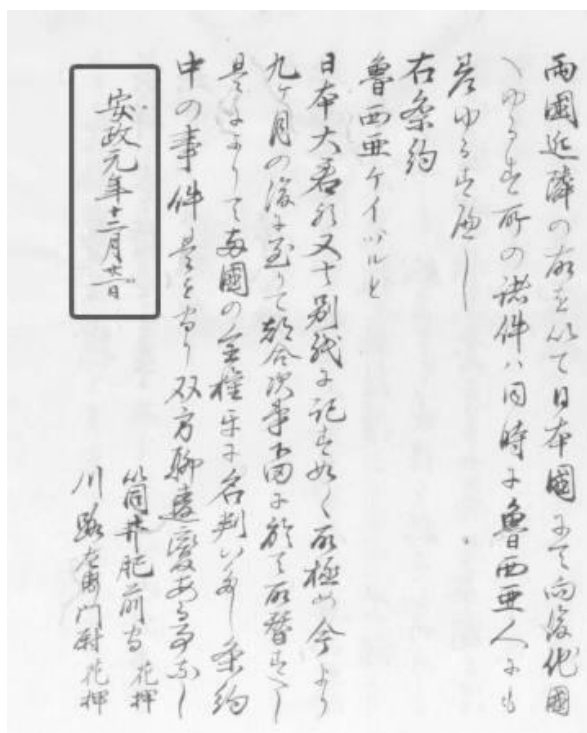 両国近隣の故を以て日本国にて向後他国
へゆるす所の諸件ハ同時に魯西亜人にも
差ゆるすへし
右条約
魯西亜ケイヅルと
日本大君と又ハ別紙に記す如く取極め今より
九ヶ月の後に至りて都合次第下田に於て取替すへし
是によりて両国の全権互に名判いたし条約
中の事件是を守り双方聊違変ある事なし
安政元年十二月廿一日
筒井肥前守 花押
川路左衛門尉 花押